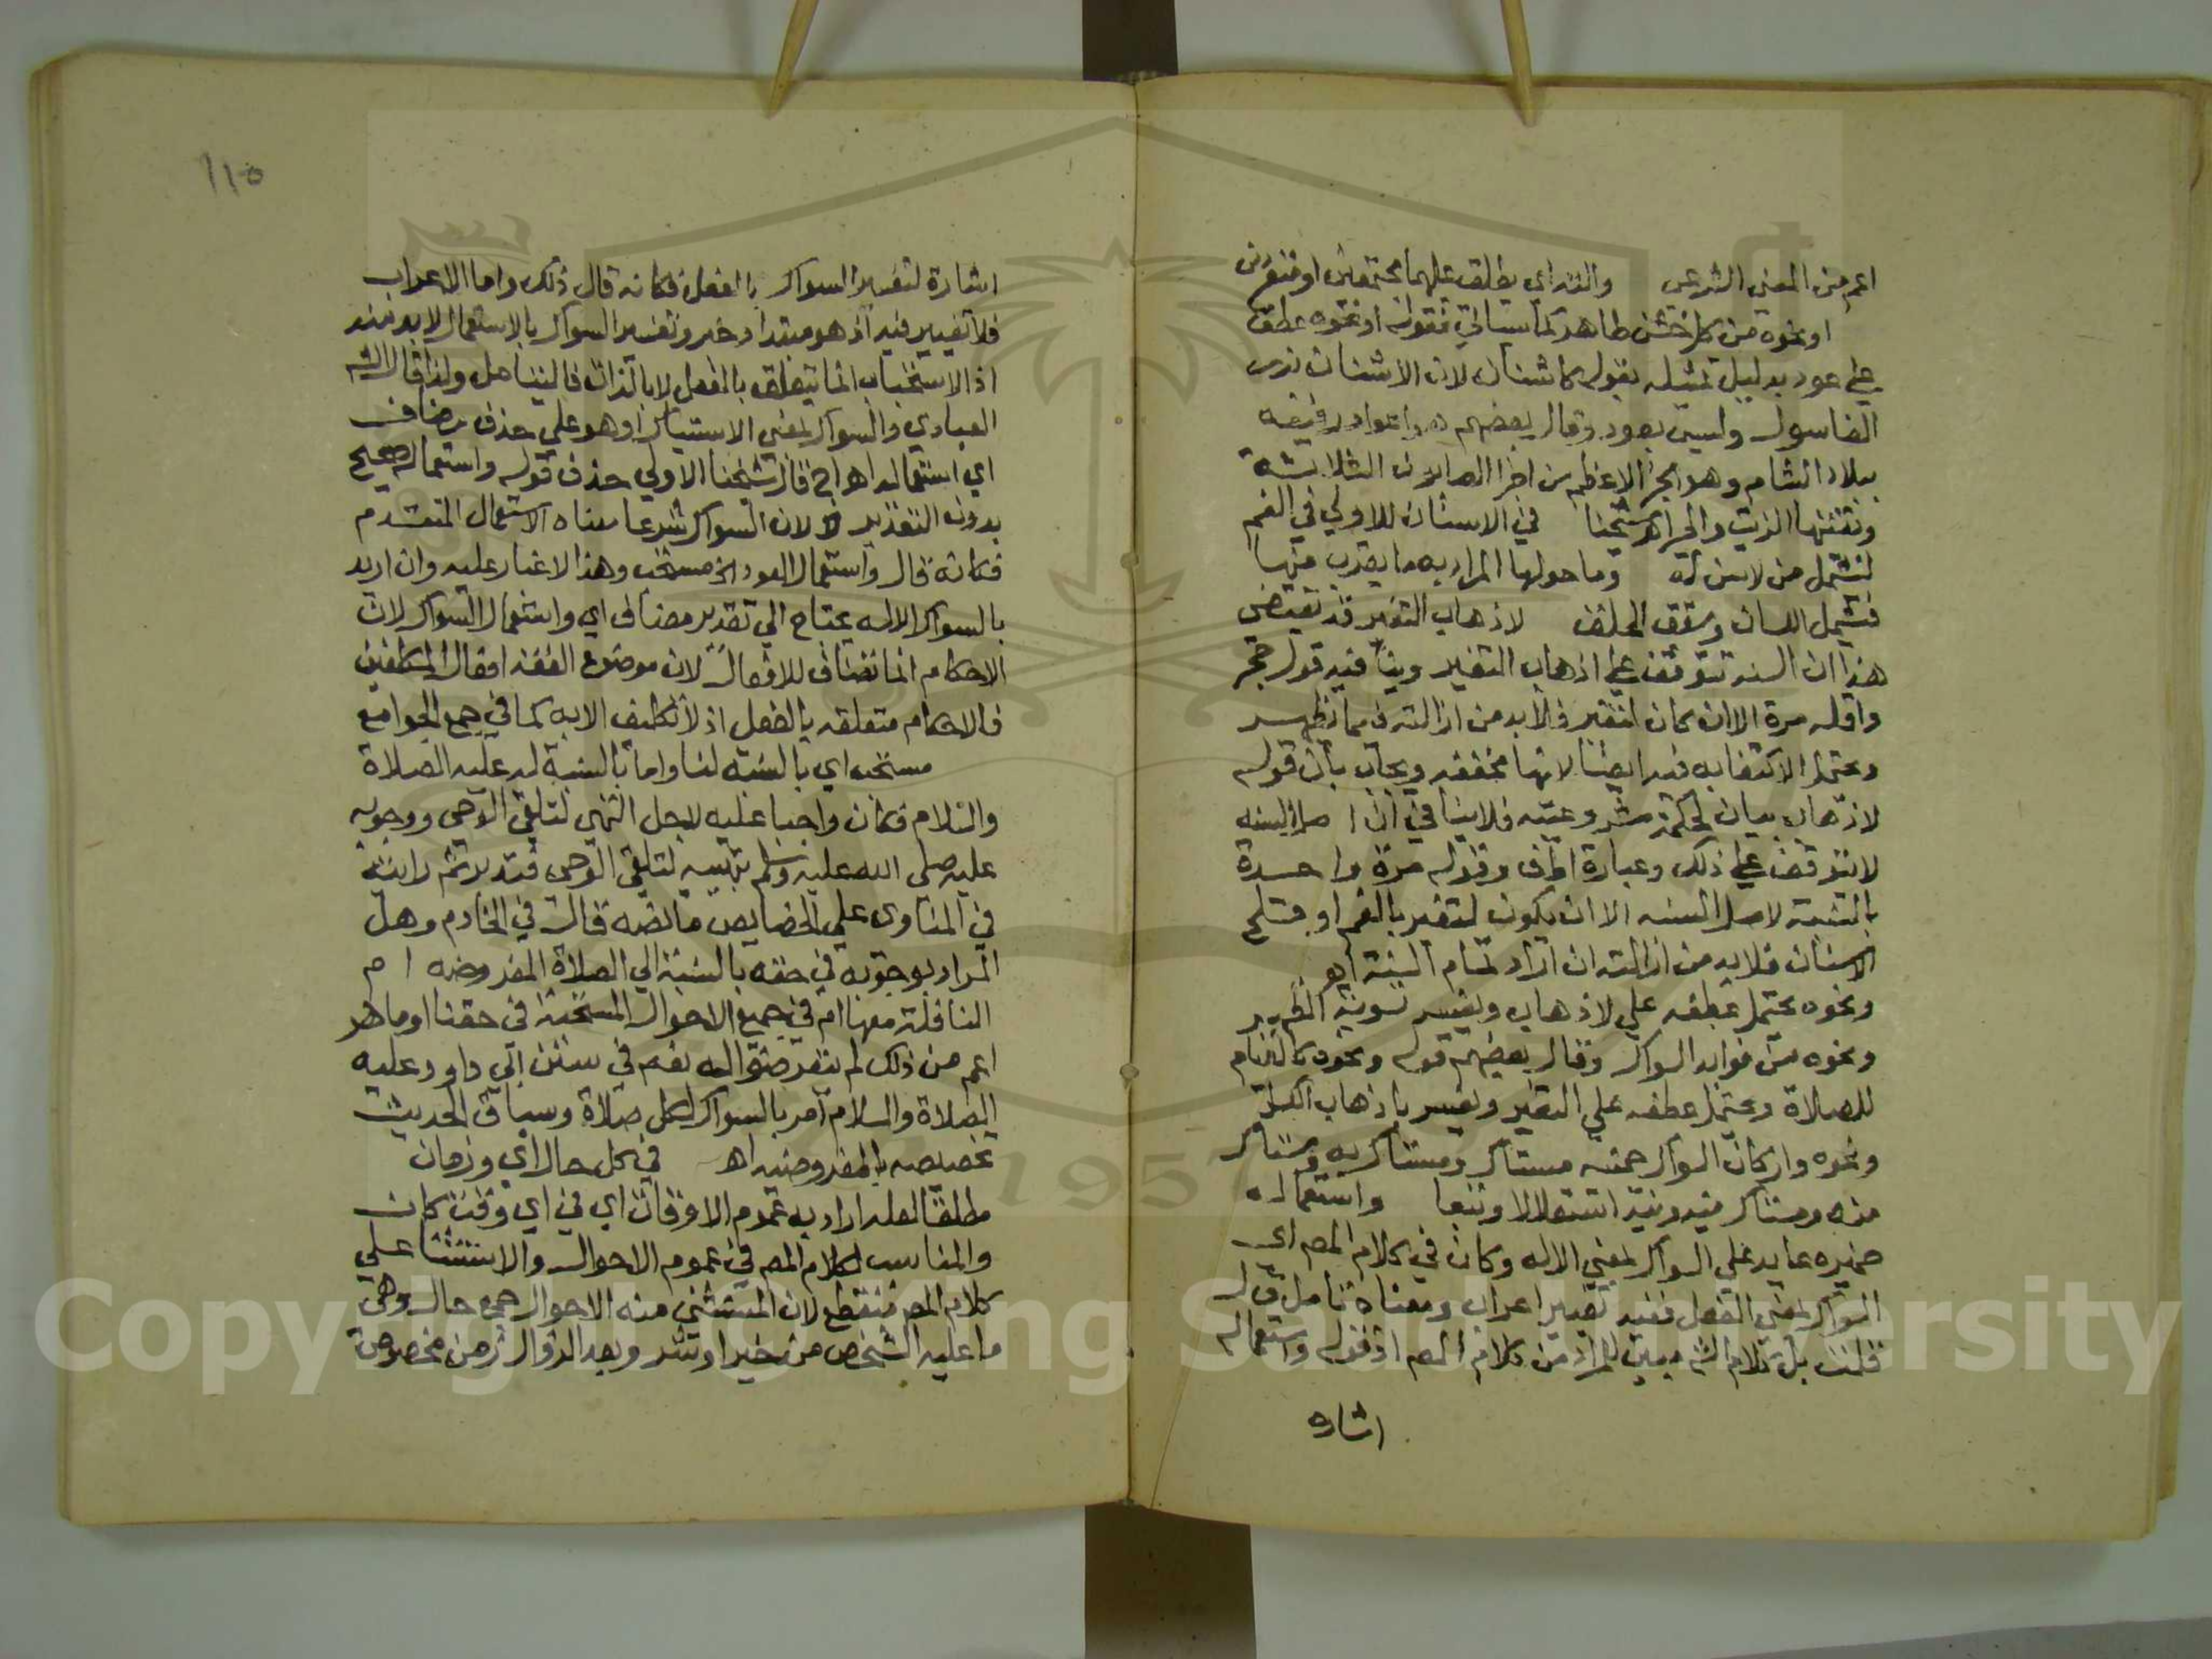 اعم من المعني الشرعي والتراي يطلق عليهما مجتمعين او منفردين
او نحوه من كل خشن طاهر كما سياتي فقوله او نحوه عطف
علي عود بدليل تمثيله بقوله كاشنان لان الاشنان نوع
الغاسول وليس بعود وقال بعضهم هو اعواد رفيعه
ببلاد الشام وهو الجز الاعظم من اجزا الصابون الثلاثة
وبقيتها الزيت والجير اهـ شيخنا في الاسنان الاولي في الفم
لتشمل من لا سن له وما حولها المراد به ما يقرب منها
فشمل اللسان وسقف الحلق لاذهاب التغير قد يقتضي
هذا ان السنه تتوقف علي اذهاب التغير وينافيه قول حجر
واقله مرة الا ان كان لتغير فلا بد من ازالته فيما يظهر
ويحتمل الاكتفا به فيه ايضا لانها مخففه ويجاب بان قوله
لاذهاب بيان لحكمة مشروعيته فلا ينافي ان اصل السنه
لا تتوقف علي ذلك وعبارة اط ف وقوله مرة واحدة
بالنسبة لاصل السنه الا ان يكون لتغير بالفم او قلح
الاسنان فلا بد من ازالته ان اراد تمام السنة اهـ
ونحوه يحتمل عطفه علي لاذهاب ويفسر تسوية الظهر
ونحوه من فوايد السواك وقال بعضهم قوله ونحوه كالقيام
للصلاة ويحتمل عطفه علي التغير ويفسر باذهاب القلح
ونحوه واركان السواك خمسه مستاك ومستاك به ومستاك
منه ومستاك فيه ونية استقلالا وتبعا واستعماله
ضميره عايد علي السواك بمعني الاله وكان في كلام المص اي
السواك بمعني الفعل ففيه تغيير اعراب ومعناه تامل قال
قلت بل كلام الش مبين للمراد من كلام المص اذ قوله واستعماله
اشاره
١١٥
اشارة لتفسير السواك بالفعل فكانه قال ذلك واما الاعراب
فلا تغيير فيه اذ هو مبتدا وخبر وتفسير السواك بالاستعمال لا بد منه
اذ الاستحباب انما يتعلق بالفعل لا بالذات فاليتامل ولذا قال الش
العبادي والسواك بمعني الاستياك او هو علي حذف مضاف
اي استعماله اهـ اج قال شيخنا الاولي حذف قوله واستعماله صحيح
بدون التقدير لان السواك شرعا معناه الاستعمال المتقدم
فكانه قال واستعمال العود الخ مستحب وهذا لا غبار عليه وان اريد
بالسواك الاله يحتاج الي تقدير مضاف اي واستعمال السواك لان
الاحكام انما تضاف للافعال لان موضوع الفقه افعال المكلفين
فالاحكام متعلقه بالفعل اذ لا تكليف الا به كما في جمع الجوامع
مستحب اي بالنسبة لنا واما بالنسبة له عليه الصلاة
والسلام فكان واجبا عليه لاجل التهي لتلقي الوحي ووجوبه
عليه صلي الله عليه وسلم بتهييه لتلقي الوحي قيد لا ثم رايته
في المناوي علي الخصايص ما نصه قال في الخادم وهل
المراد بوجوبه في حقه بالنسبة الي الصلاة المفروضه ام
النافلة معها ام في جميع الاحوال المستحبة في حقنا او ما هو
اعم من ذلك لم يتعرضوا له نعم في سنن ابي داود عليه
الصلاة والسلام امر بالسواك لكل صلاة وسياق الحديث
تخصيصه بالمفروضه اهـ في كل حال اي وزمان
مطلقا لعله اراد به عموم الاوقات اي في اي وقت كان
والمناسب لكلام المص في عموم الاحوال والاستثنا علي
كلام المص منقطع لان المستثني منه الاحوال جمع حال وهي
ما عليه الشخص من خير او شر وبعد الزوال زمن مخصوص
Copyright © King Saud University
1957